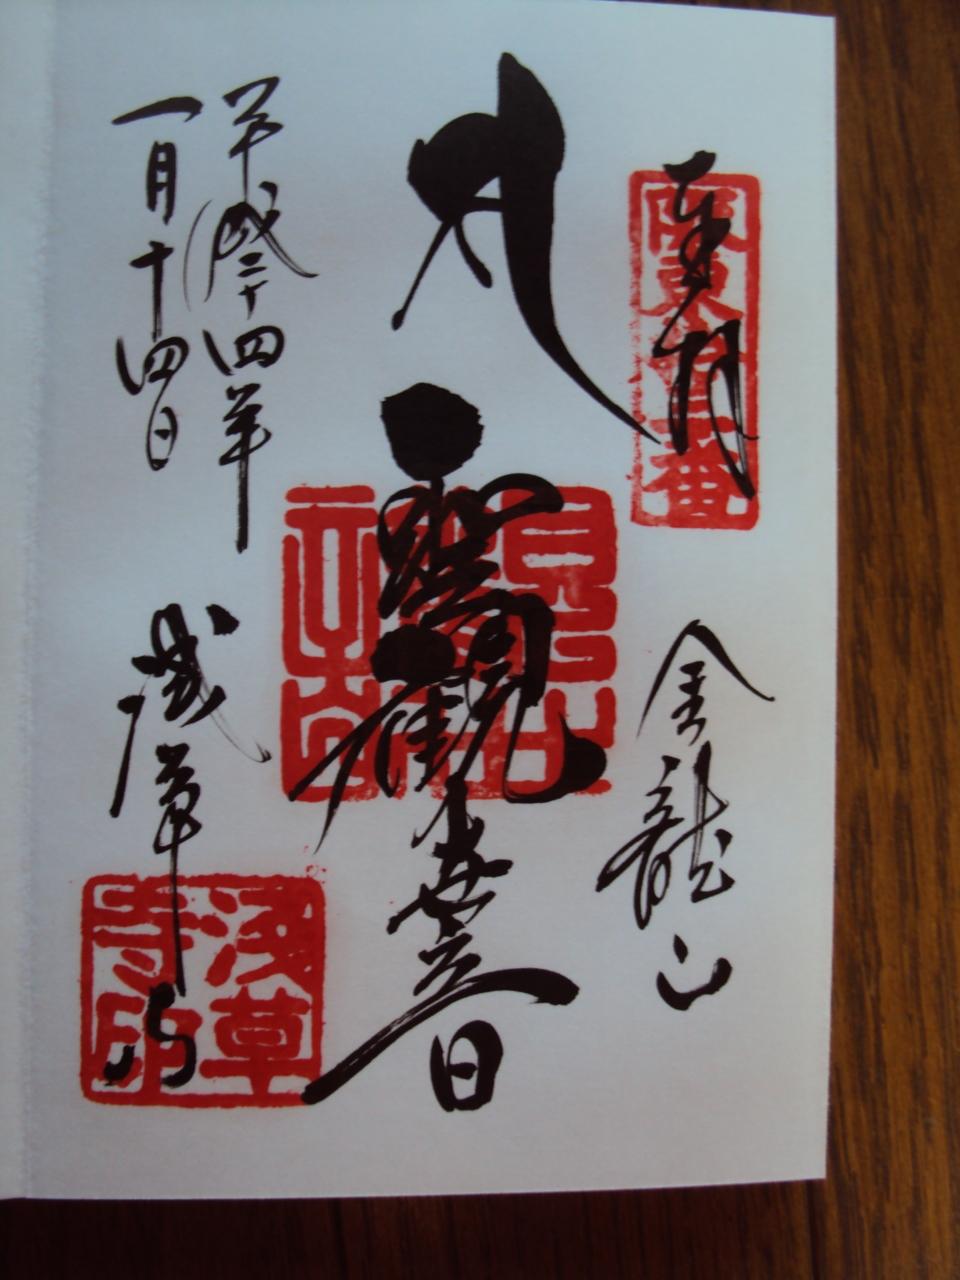 奉拝
坂東十三番
金龍山
聖観世音
平成二十四年
一月十四日
浅草寺
浅草寺印